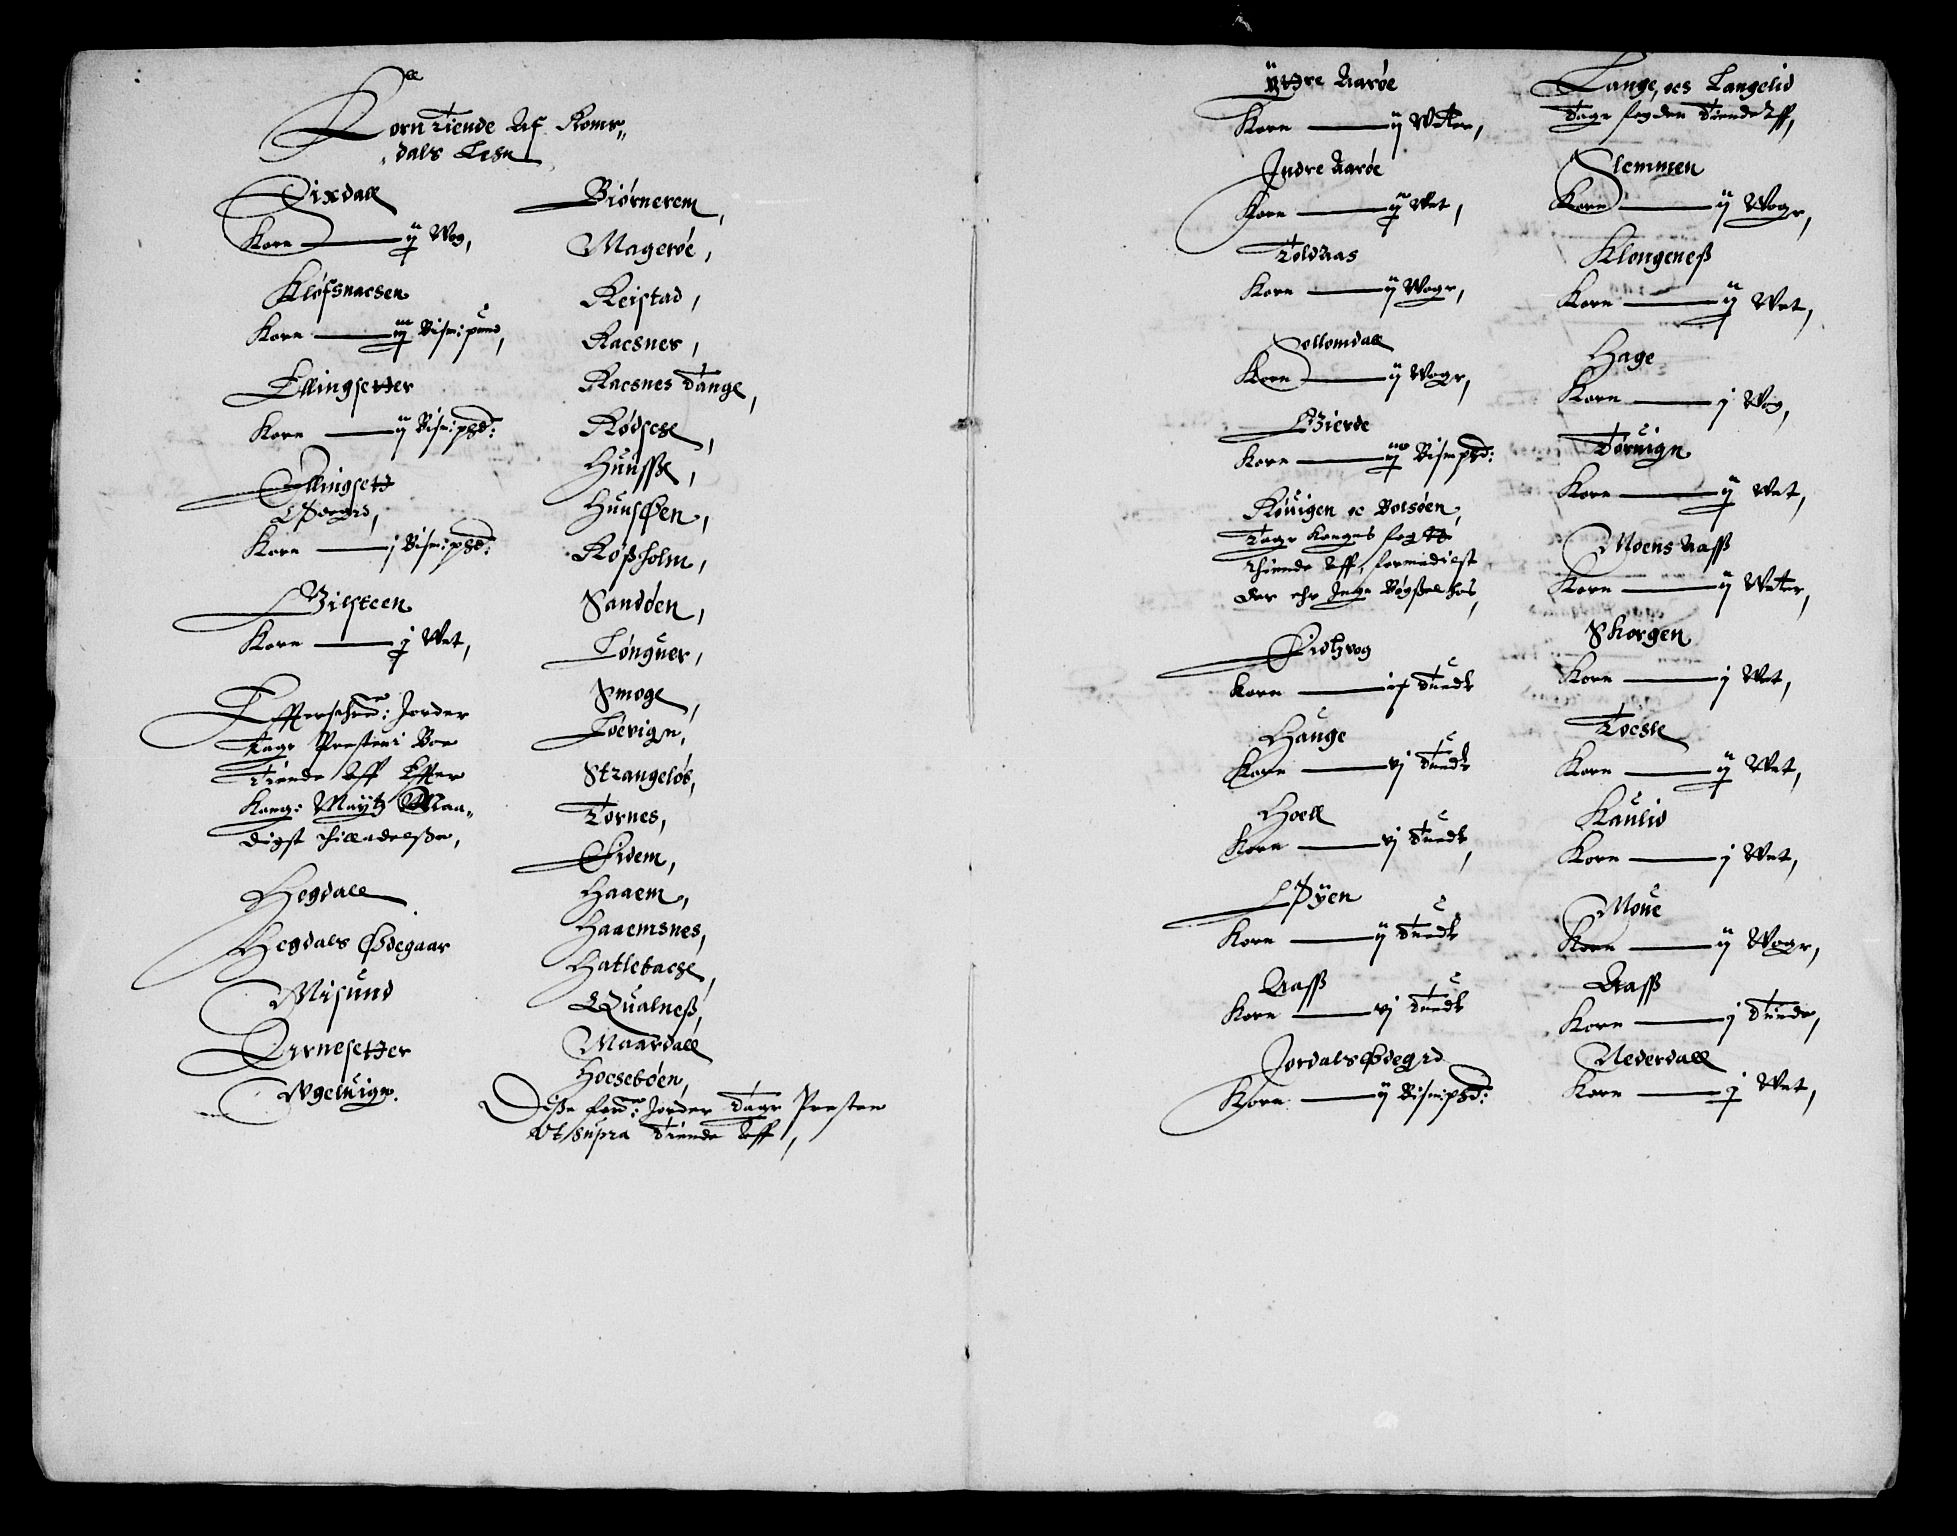 Korn Tiende Af Roms„
„dals Lehn
Dixdall
Korn — ij Wog,
Klöfsnacsen
Korn — iij Bism: pund,
Ellingsetter
Korn — ij Bism: pd:
Ellingsett
Ødegrd,
Korn — j Bism: pd:
Bilsteen
Korn — j Wet,
Effterschr: Jorder
tagr Presten i Boe
Tiende Aff Effter
Kong: Maytz Naa„
digst Tilladelsse,
Hegdall
Hegdals Ødegaar
Misund
Arnesetter
Vgeluign.
Biörnerem,
Mageröe,
Reistad,
Racsnes,
Racsnes Tange,
Rödsche,
Huusse,
Huusøen,
Rössholm,
Sandöen,
Lönguer,
Smoge,
Löevign,
Strangelös,
Tornes,
Eidem,
Haaem,
Haaemsnes,
Hatlebache,
Qualness,
Maardall
Hocseböen,
Disse ford: Jorder Tagr Presten
Vt supra Tiende Aff,
Ÿttre Aaröe
Korn — ij Wetter,
Indre Aaröe
Korn — ij Wet,
Toldaas
Korn — ij Wogr,
Sollemdall
Korn — ij Wogr,
Gierde
Korn — iij Bism pd:
Röuigen oc Bolsöen,
Tagr Konges fogtt
Thiende Aff, formedelst
der ehr Inge Bögssel hos,
Eidtzvog
Korn — ij Tundr
Hauge
Korn — vj Tundr
Hoell
Korn — vj Tundr,
Øÿen
Korn — ij Tundr
Aass
Korn — vj Tundr
Jordals Ødegrd
Korn — ij Bism: pd:
Tange, och Langelid
Tagr fogden Tiende Aff,
Slemmen
Korn — ij Wogr,
Klongeness
Korn — ij Wet,
Hage
Korn — j Wog,
Toruign
Korn — ij Wet,
Moens Aass
Korn — ij Wetter,
Skorgen
Korn — j Wet,
Tocsle
Korn — ij Wet,
Kaulid
Korn — j Wet,
Moue
Korn — ij Wogr,
Aass
Korn — j Tunde,
Nederdall
Korn — j Wet,